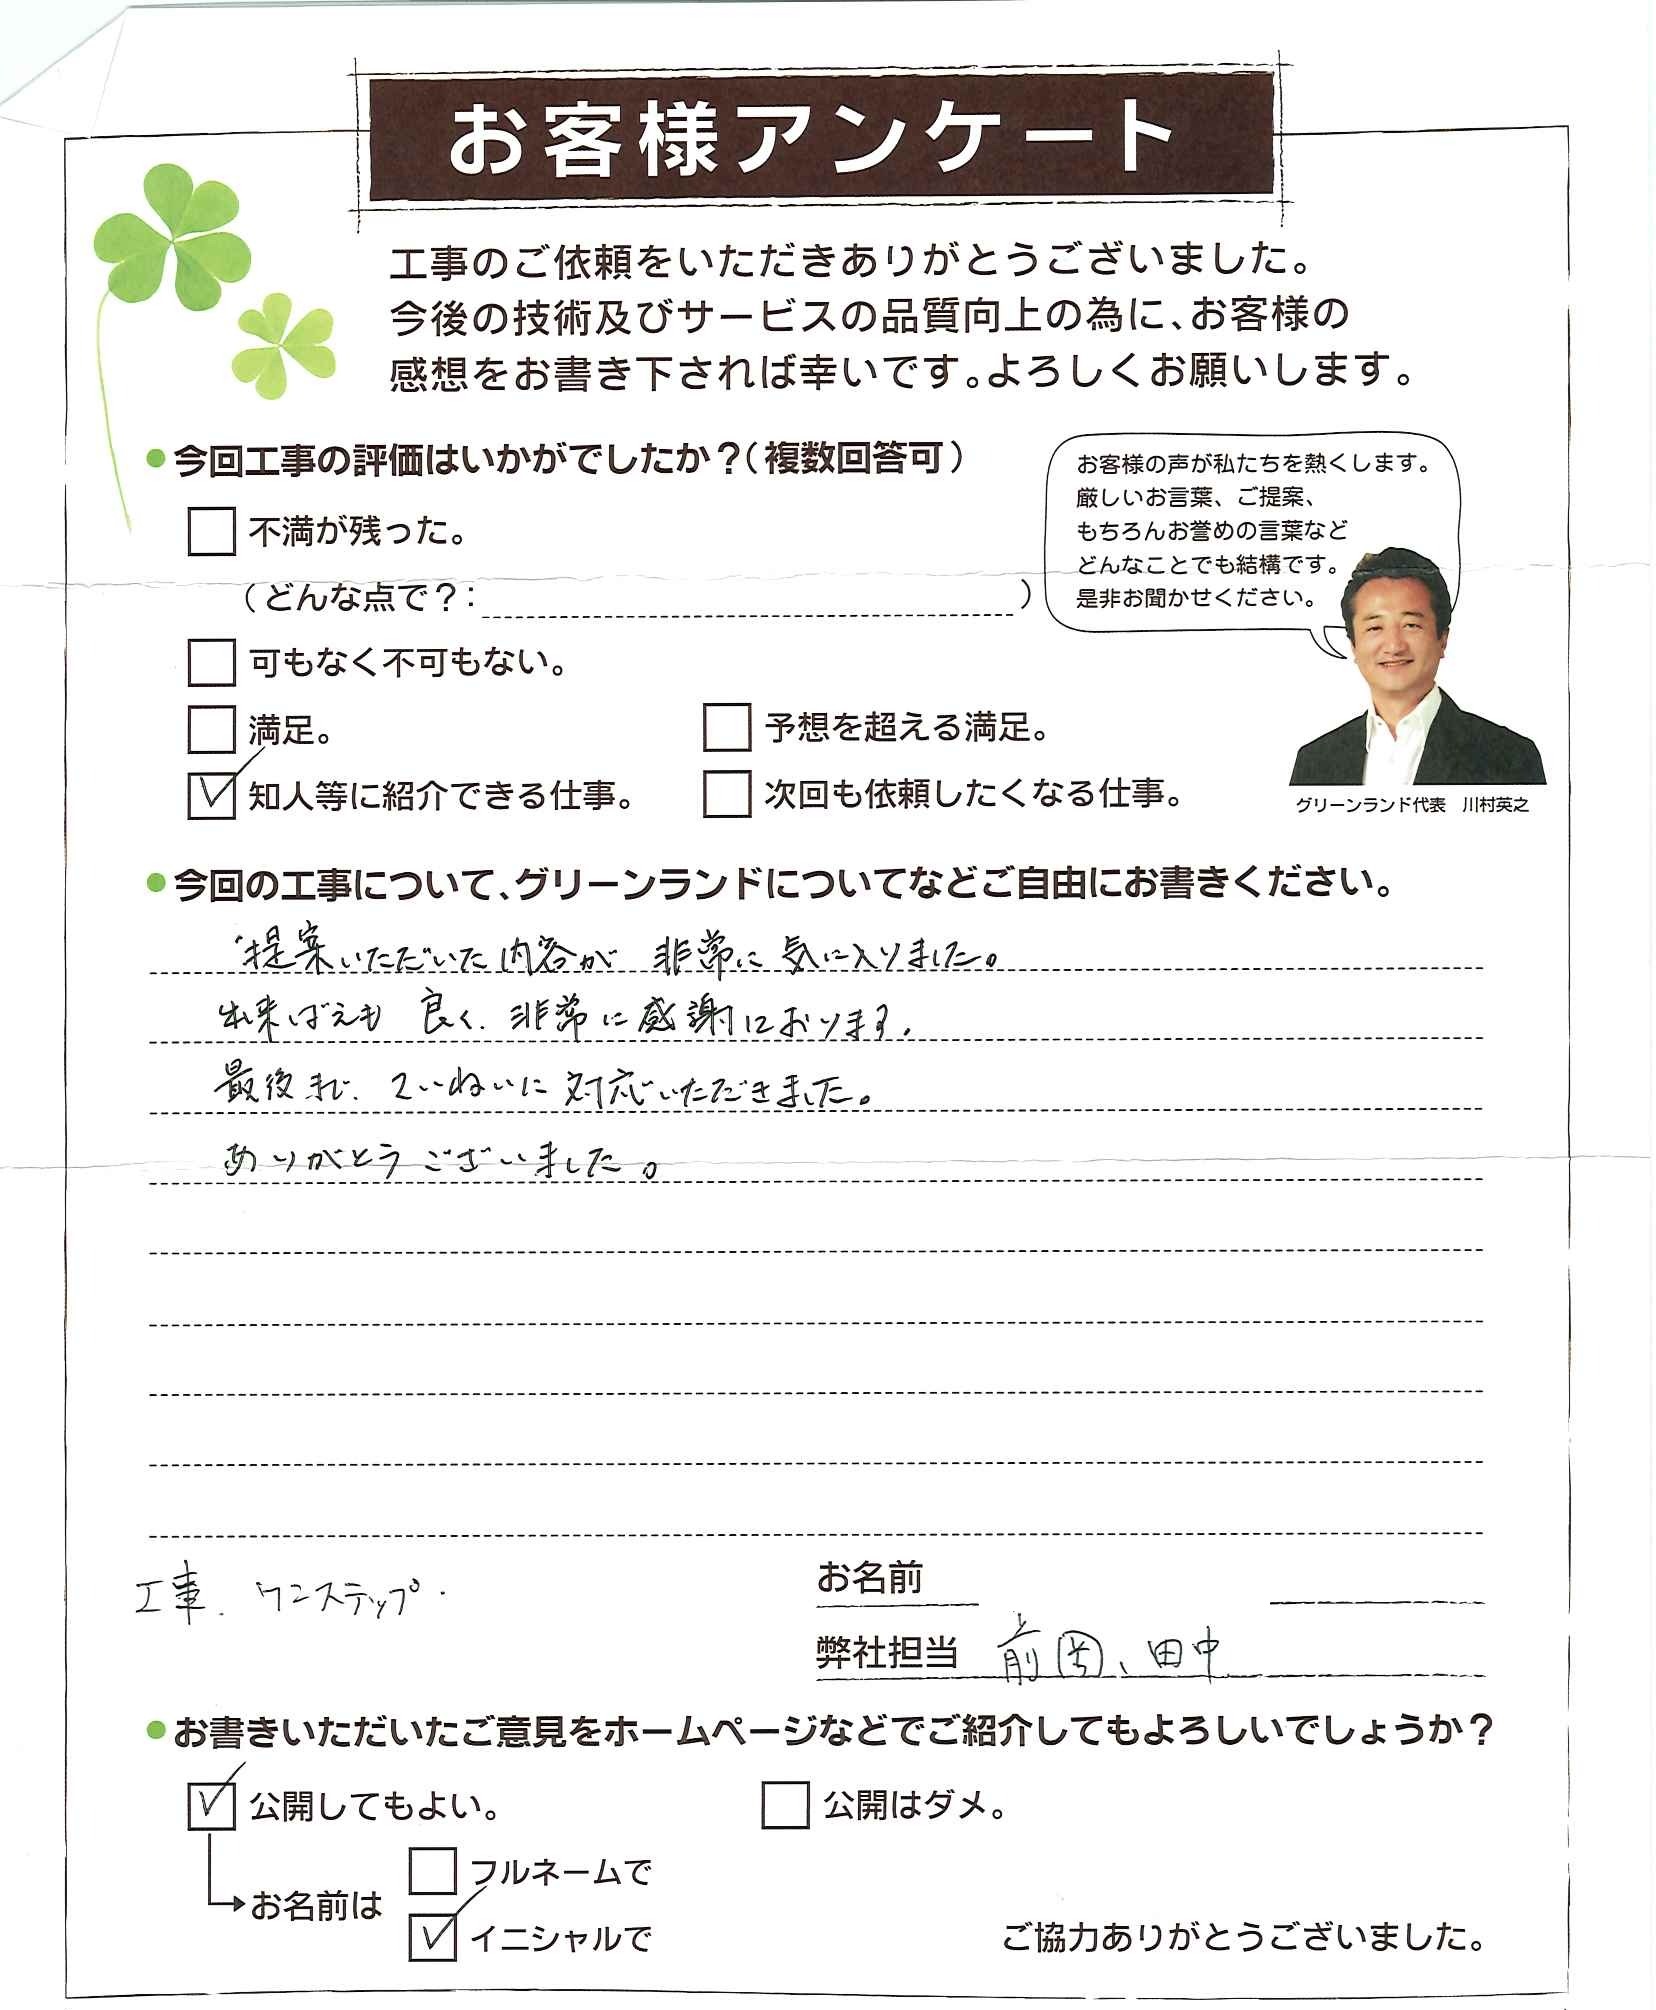 お客様アンケート
工事のご依頼をいただきありがとうございました。
今後の技術及びサービスの品質向上の為に、お客様の
感想をお書き下されば幸いです。よろしくお願いします。
●今回工事の評価はいかがでしたか？（複数回答可）
お客様の声が私たちを熱くします。
厳しいお言葉、ご提案、
もちろんお誉めの言葉など
どんなことでも結構です。
是非お聞かせください。
不満が残った。
（どんな点で？：　　　）
可もなく不可もない。
満足。
予想を超える満足。
知人等に紹介できる仕事。
次回も依頼したくなる仕事。
グリーンランド代表　川村英之
●今回の工事について、グリーンランドについてなどご自由にお書きください。
提案いただいた内容が 非常に気に入りました。
出来ばえも 良く、非常に感謝しております。
最後まで、ていねいに対応いただきました。
ありがとうございました。
工事、ワンステップ.
お名前
弊社担当 前岡、田中
●お書きいただいたご意見をホームページなどでご紹介してもよろしいでしょうか？
公開してもよい。
公開はダメ。
お名前は
フルネームで
イニシャルで
ご協力ありがとうございました。